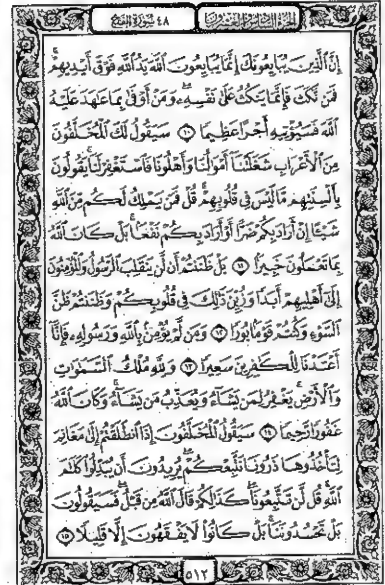 الجزء السادس والعشرون ٤٨ سورة الفتح
إِنَّ ٱلَّذِينَ يُبَايِعُونَكَ إِنَّمَا يُبَايِعُونَ ٱللَّهَ يَدُ ٱللَّهِ فَوْقَ أَيْدِيهِمْ ۚ
فَمَن نَّكَثَ فَإِنَّمَا يَنكُثُ عَلَىٰ نَفْسِهِۦ ۖ وَمَنْ أَوْفَىٰ بِمَا عَـٰهَدَ عَلَيْهُ
ٱللَّهَ فَسَيُؤْتِيهِ أَجْرًا عَظِيمًا ١٠ سَيَقُولُ لَكَ ٱلْمُخَلَّفُونَ
مِنَ ٱلْأَعْرَابِ شَغَلَتْنَآ أَمْوَٰلُنَا وَأَهْلُونَا فَٱسْتَغْفِرْ لَنَا ۚ يَقُولُونَ
بِأَلْسِنَتِهِم مَّا لَيْسَ فِى قُلُوبِهِمْ ۚ قُلْ فَمَن يَمْلِكُ لَكُم مِّنَ ٱللَّهِ
شَيْـًٔا إِنْ أَرَادَ بِكُمْ ضَرًّا أَوْ أَرَادَ بِكُمْ نَفْعًۢا ۚ بَلْ كَانَ ٱللَّهُ
بِمَا تَعْمَلُونَ خَبِيرًۢا ١١ بَلْ ظَنَنتُمْ أَن لَّن يَنقَلِبَ ٱلرَّسُولُ وَٱلْمُؤْمِنُونَ
إِلَىٰٓ أَهْلِيهِمْ أَبَدًا وَزُيِّنَ ذَٰلِكَ فِى قُلُوبِكُمْ وَظَنَنتُمْ ظَنَّ
ٱلسَّوْءِ وَكُنتُمْ قَوْمًۢا بُورًا ١٢ وَمَن لَّمْ يُؤْمِنۢ بِٱللَّهِ وَرَسُولِهِۦ فَإِنَّآ
أَعْتَدْنَا لِلْكَـٰفِرِينَ سَعِيرًا ١٣ وَلِلَّهِ مُلْكُ ٱلسَّمَـٰوَٰتِ
وَٱلْأَرْضِ ۚ يَغْفِرُ لِمَن يَشَآءُ وَيُعَذِّبُ مَن يَشَآءُ ۚ وَكَانَ ٱللَّهُ
غَفُورًا رَّحِيمًا ١٤ سَيَقُولُ ٱلْمُخَلَّفُونَ إِذَا ٱنطَلَقْتُمْ إِلَىٰ مَغَانِمَ
لِتَأْخُذُوهَا ذَرُونَا نَتَّبِعْكُمْ ۖ يُرِيدُونَ أَن يُبَدِّلُوا۟ كَلَـٰمَ
ٱللَّهِ ۚ قُل لَّن تَتَّبِعُونَا كَذَٰلِكُمْ قَالَ ٱللَّهُ مِن قَبْلُ ۖ فَسَيَقُولُونَ
بَلْ تَحْسُدُونَنَا ۚ بَلْ كَانُوا۟ لَا يَفْقَهُونَ إِلَّا قَلِيلًا ١٥
٥١٢